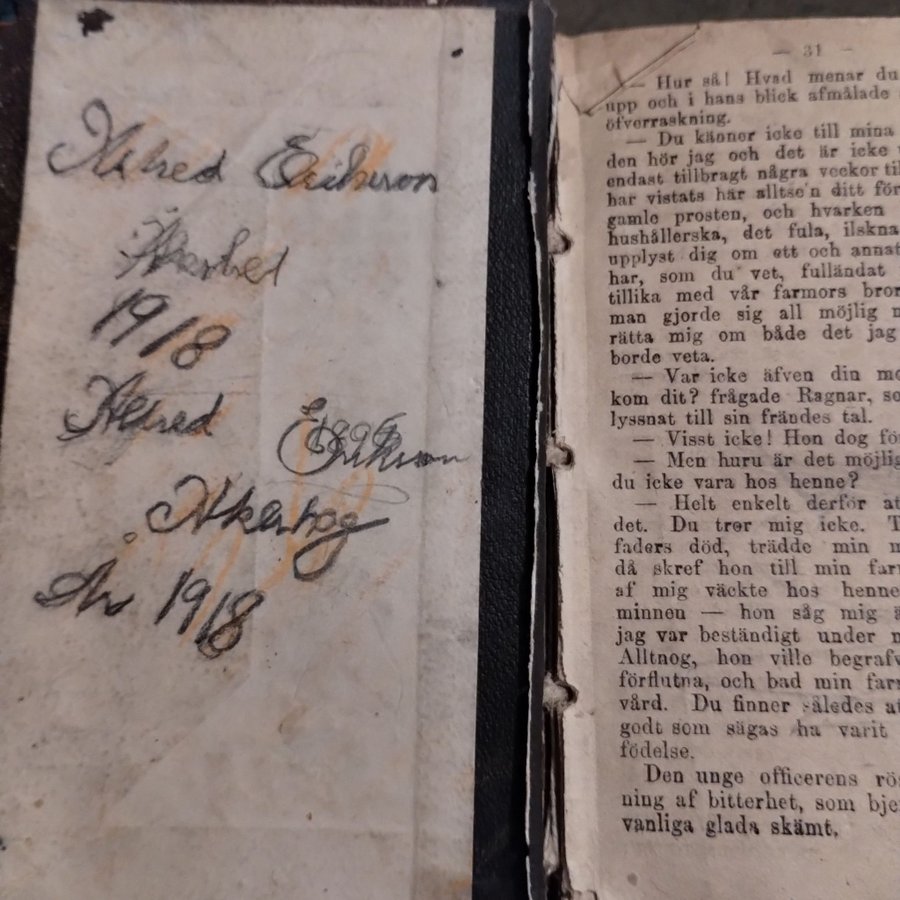 Alfred Erikson
1918
Alfred Erikson
Åkerhag
År 1918
— 31 —
— Hur så! Hvad menar du
upp och i hans blick afmålade
öfverraskning.
— Du känner icke till mina
den hör jag och det är icke
endast tillbragt några veckor
har vistats här alltse'n ditt
gamle prosten, och hvarken
hushållerska, det fula, ilskna
upplyst dig om ett och annat
har, som du vet, fulländat
tillika med vår farmors bror
man gjorde sig all möjlig
rätta mig om både det jag
borde veta.
— Var icke äfven din
kom dit? frågade Ragnar,
lyssnat till sin frändes tal.
— Visst icke! Hon dog
— Men huru är det
du icke vara hos henne?
— Helt enkelt derför
det. Du tror mig icke.
faders död, trädde min
då skref hon till min
af mig väckte hos henne
minnen — hon såg mig
jag var beständigt under
Alltnog, hon ville
förflutna, och bad min
vård. Du finner således
godt som sägas ha varit
födelse.
Den unge officerens
ning af bitterhet, som
vanliga glada skämt.